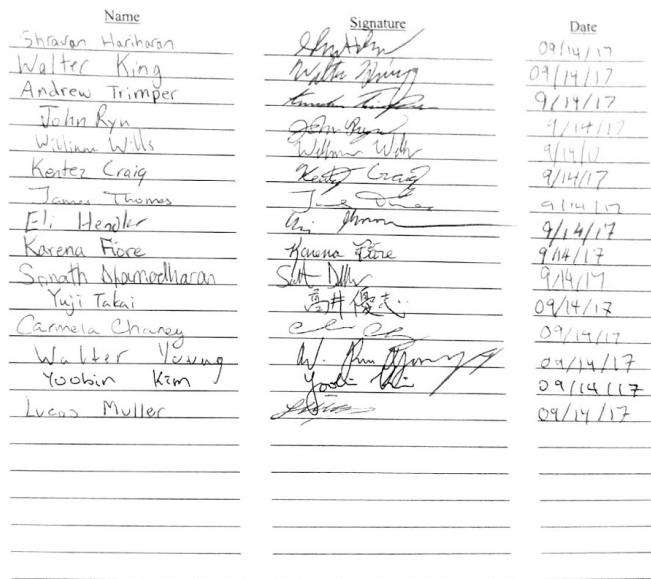 Name Signature Date
Shravan Hariharan 09/14/17
Walter King Walter King 09/14/17
Andrew Trimper 9/14/17
John Ryn John Ryn 9/14/17
William Wills William Wills 9/14/17
Kentez Craig Craig 9/14/17
James Thomas 9/14/17
Eli Hendler 9/14/17
Karena Fiore Karena Fiore 9/14/17
Sonath Dhamodharan 9/14/17
Yuji Takai 高井優志 09/14/17
Carmela Chaney 09/14/17
Walter Young W. 09/14/17
Yoobin Kim 09/14/17
Lucas Muller 09/14/17